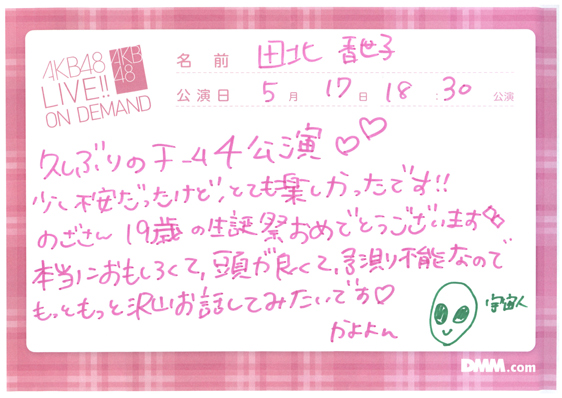 AKB48
LIVE!!
ON DEMAND
AKB
48
名前 田北 香世子
公演日 5月17日 18:30 公演
久しぶりのチーム4公演♡♡
少し不安だったけど、とても楽しかったです!!
のざさん 19歳の生誕祭おめでとうございます
本当におもしろくて、頭が良くて、予測り不能なので
もっともっと沢山お話してみたいです♡
かよよん
宇宙人
DMM.com